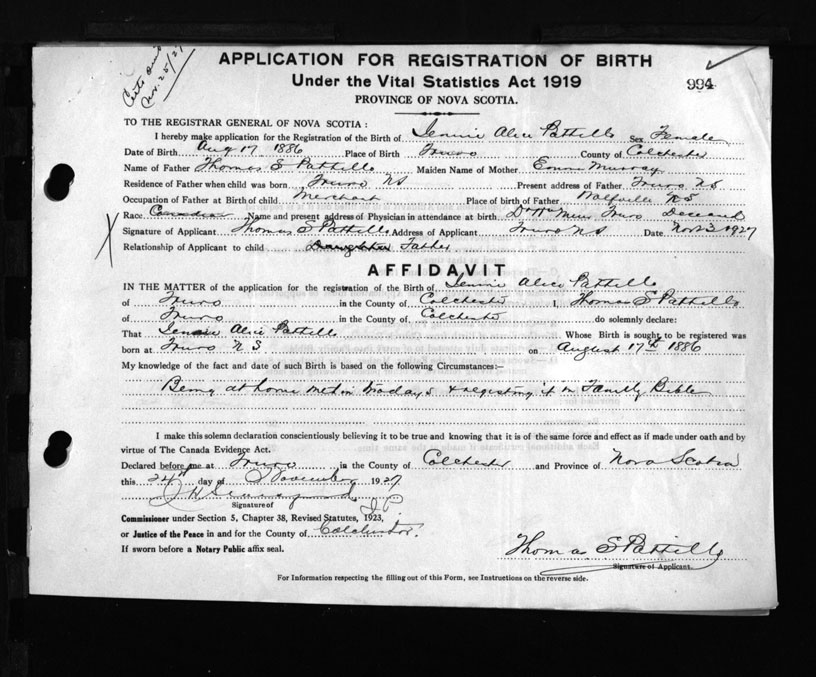 Nov. 25/27
APPLICATION FOR REGISTRATION OF BIRTH
Under the Vital Statistics Act 1919
994
PROVINCE OF NOVA SCOTIA.
TO THE REGISTRAR GENERAL OF NOVA SCOTIA:
I hereby make application for the Registration of the Birth of Jennie Alice Pattillo Sex Female
Date of Birth Aug 17 1886 Place of Birth Truro County of Colchester
Name of Father Thomas S Pattillo Maiden Name of Mother Murray
Residence of Father when child was born Truro NS Present address of Father Truro NS
Occupation of Father at Birth of child Merchant Place of birth of Father Wolfville N S
Race Canadian Name and present address of Physician in attendance at birth Dr Truro Deceased
Signature of Applicant Thomas S Pattillo Address of Applicant Truro N S Date 1927
Relationship of Applicant to child Daughter Father
AFFIDAVIT
IN THE MATTER of the application for the registration of the Birth of Jennie Alice Pattillo
of Truro in the County of Colchester I, Thomas S Pattillo
of Truro in the County of Colchester do solemnly declare:
That Jennie Alice Pattillo Whose Birth is sought to be registered was
born at Truro N S on August 17th 1886
My knowledge of the fact and date of such Birth is based on the following Circumstances:—
Being at home & registering it in Family Bible
I make this solemn declaration conscientiously believing it to be true and knowing that it is of the same force and effect as if made under oath and by
virtue of The Canada Evidence Act.
Declared before me at Truro in the County of Colchester and Province of Nova Scotia
this 24th day of November 1927
Signature of J P
Commissioner under Section 5, Chapter 38, Revised Statutes, 1923,
or Justice of the Peace in and for the County of Colchester.
If sworn before a Notary Public affix seal.
Thomas S Pattillo
Signature of Applicant.
For Information respecting the filling out of this Form, see Instructions on the reverse side.